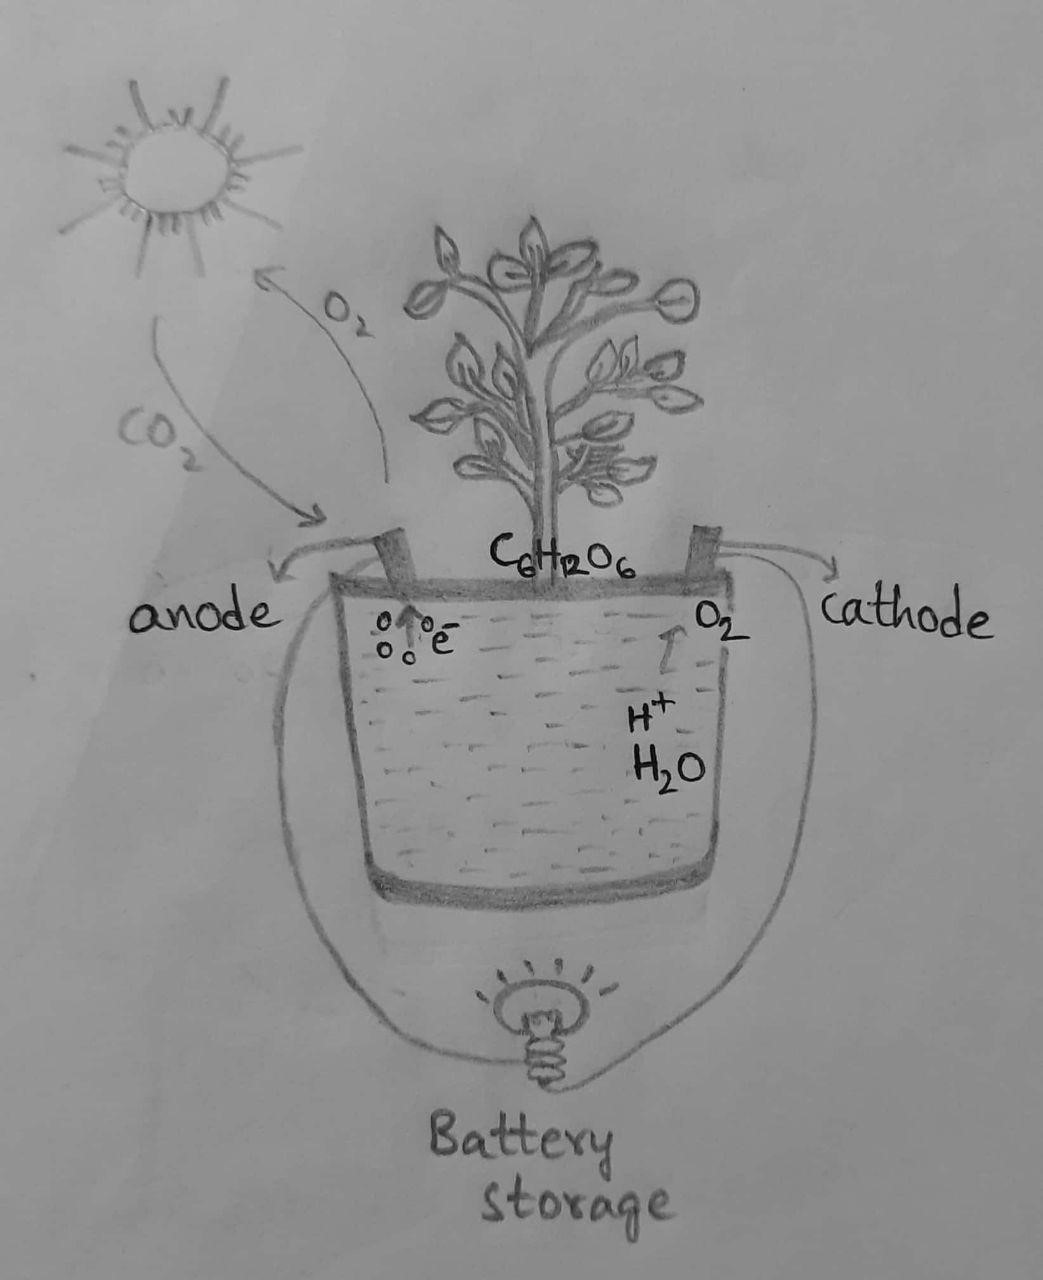 O₂
CO₂
C₆H₁₂O₆
anode
cathode
e⁻
O₂
H⁺
H₂O
Battery
storage